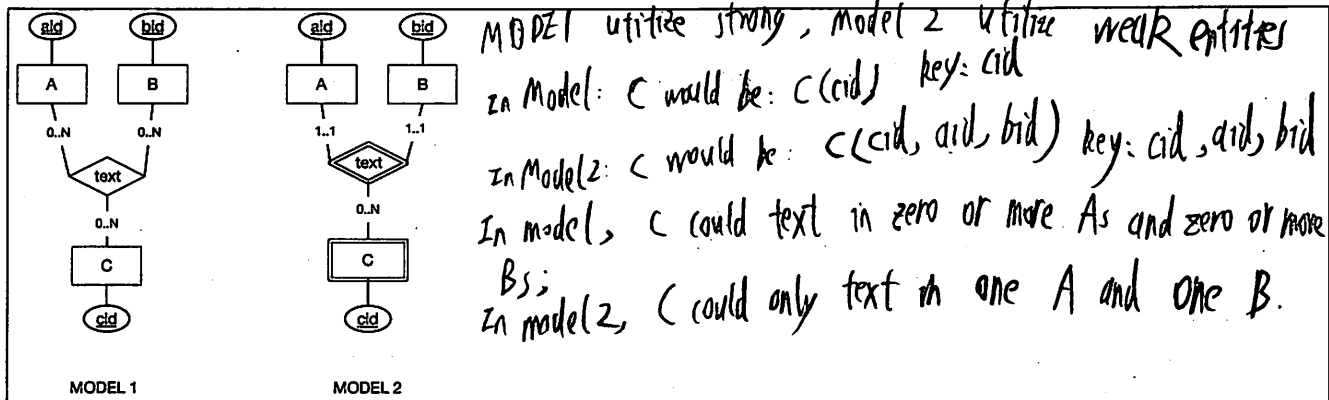 aid
bid
A
B
0..N
0..N
text
0..N
C
cid
MODEL 1
aid
bid
A
B
1..1
1..1
text
0..N
C
cid
MODEL 2
MODEL utilize strong, model 2 utilize weak entities
In Model: C would be: C(cid) key: cid
In Model2: C would be: C(cid, aid, bid) key: cid, aid, bid
In model, C could text in zero or more As and zero or more
Bs;
In model2, C could only text in one A and one B.